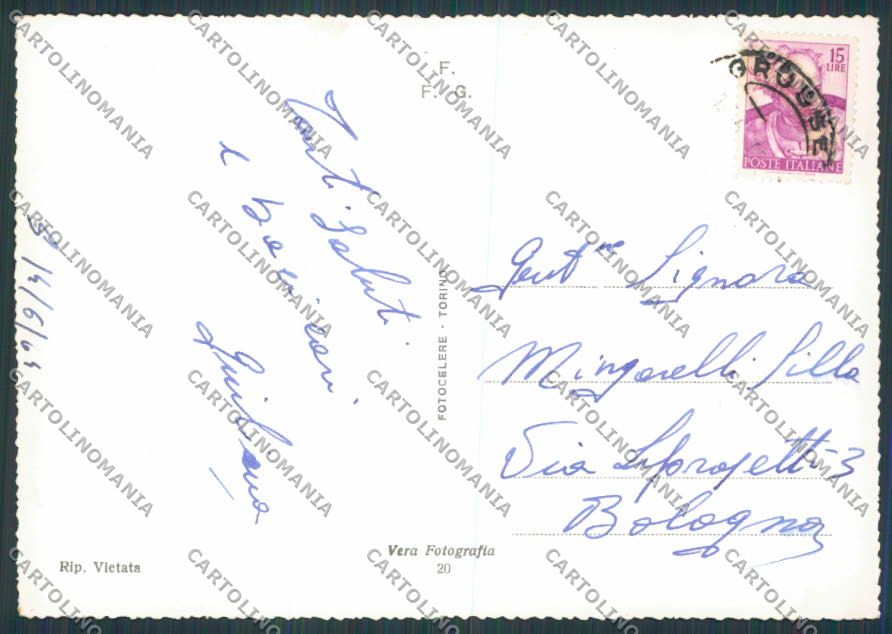 F.
F. G.
15
LIRE
POSTE ITALIANE
Tanti Saluti
e bacioni
Giuliana
14/6/64
FOTOCELERE - TORINO
Gent.ma Signora
Mingarelli Silla
Via 3
Bologna
Vera Fotografia
20
Rip. Vietata
CARTOLINOMANIA